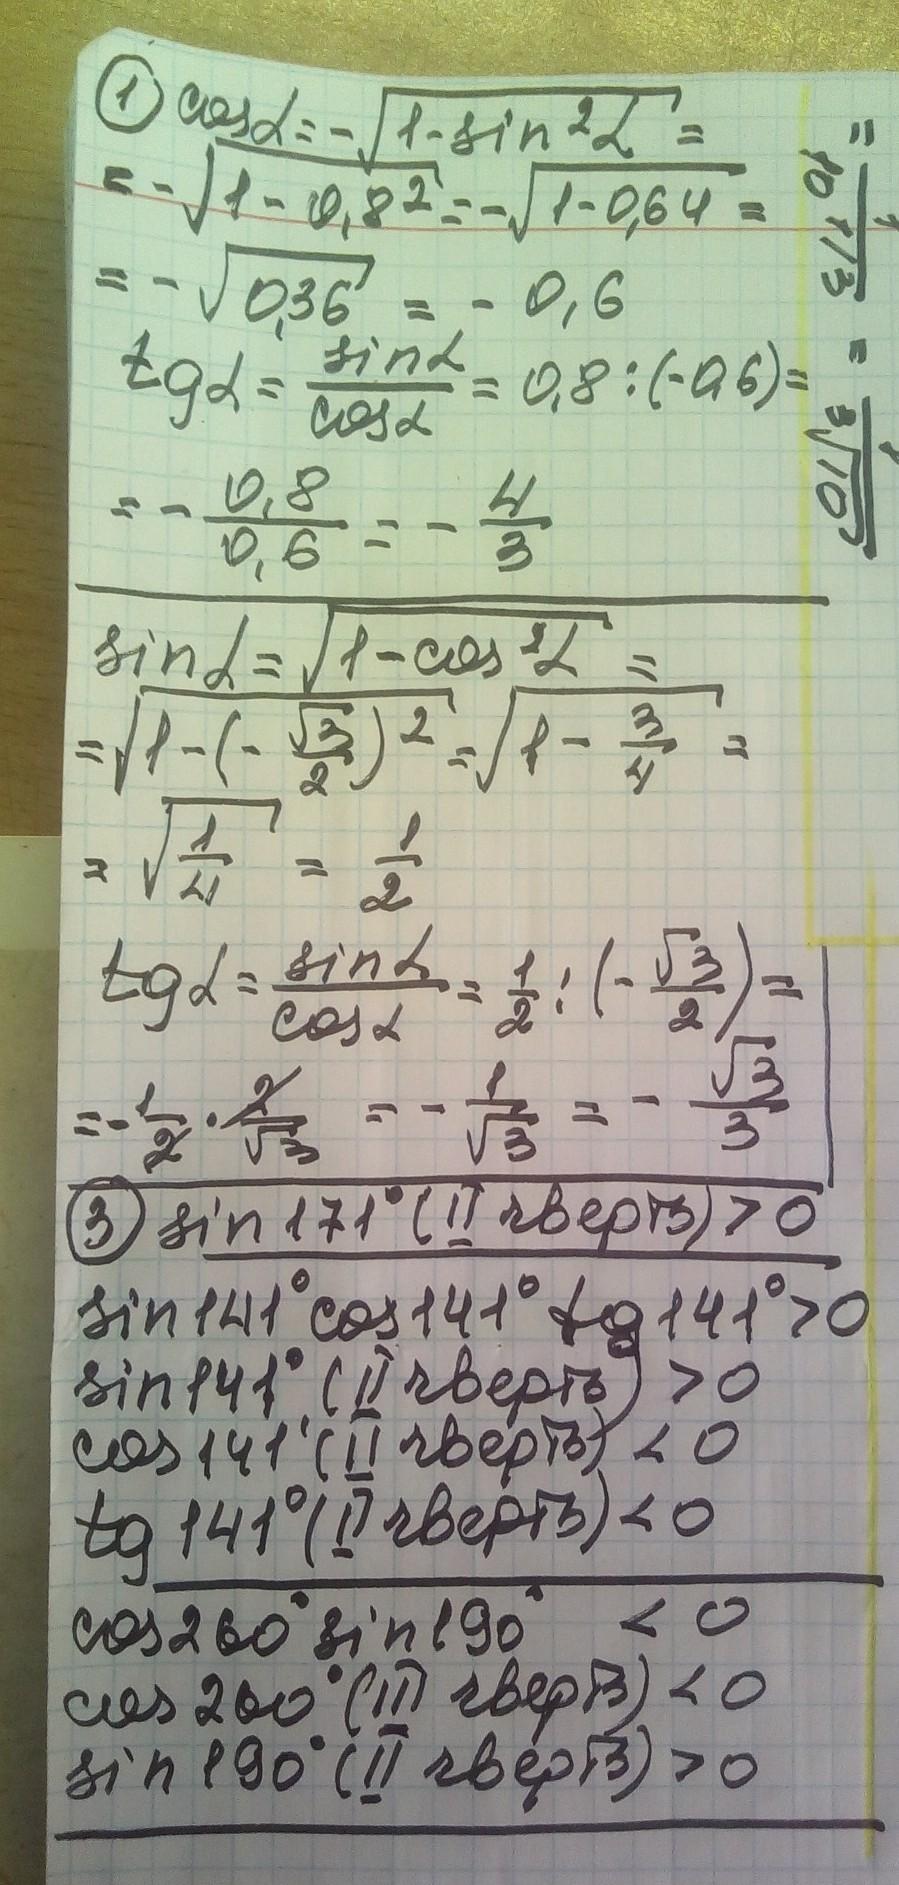 ① cosα = -√(1-sin²α) =
= -√(1-0,8²) = -√(1-0,64) =
= -√(0,36) = - 0,6
tgα = sinα/cosα = 0,8 : (-0,6) =
= - 0,8/0,6 = - 4/3
sinα = √(1-cos²α) =
= √(1-(-√3/2)²) = √(1 - 3/4) =
= √(1/4) = 1/2
tgα = sinα/cosα = 1/2 : (- √3/2) =
= - 1/2 · 2/√3 = - 1/√3 = - √3/3
③ sin171° (II чверть) > 0
sin141° cos141° tg141° > 0
sin141° (II чверть) > 0
cos141° (II чверть) < 0
tg141° (II чверть) < 0
cos260° sin190° < 0
cos260° (III чверть) < 0
sin190° (II чверть) > 0
=
= 1/(3√10)